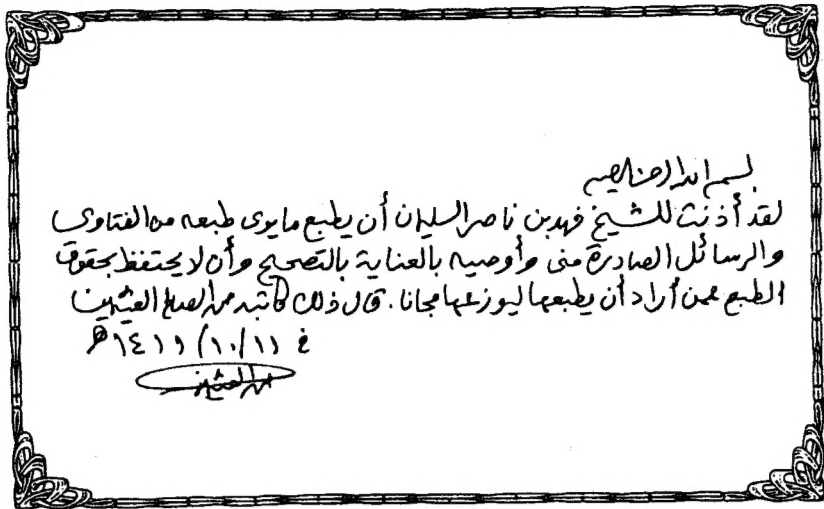 بسم الله الرحمن الرحيم
لقد أذنت للشيخ فهد بن ناصر السليمان أن يطبع ما يرى طبعه من الفتاوى
والرسائل الصادرة منى وأوصيه بالعناية بالتصحيح وأن لا يحتفظ بحقوق
الطبع عمن أراد أن يطبعها ليوزعها مجانا. قال ذلك كاتبه محمد الصالح العثيمين
في ١١/١٠/١٤١١ هـ
محمد العثيمين